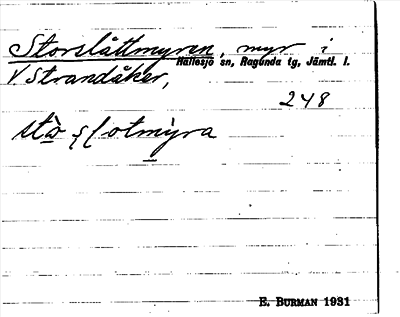 Storslåttmyren, myr i
Hällesjö sn, Ragunda tg, Jämtl. l.
V Strandåker,
248
E. BURMAN 1931